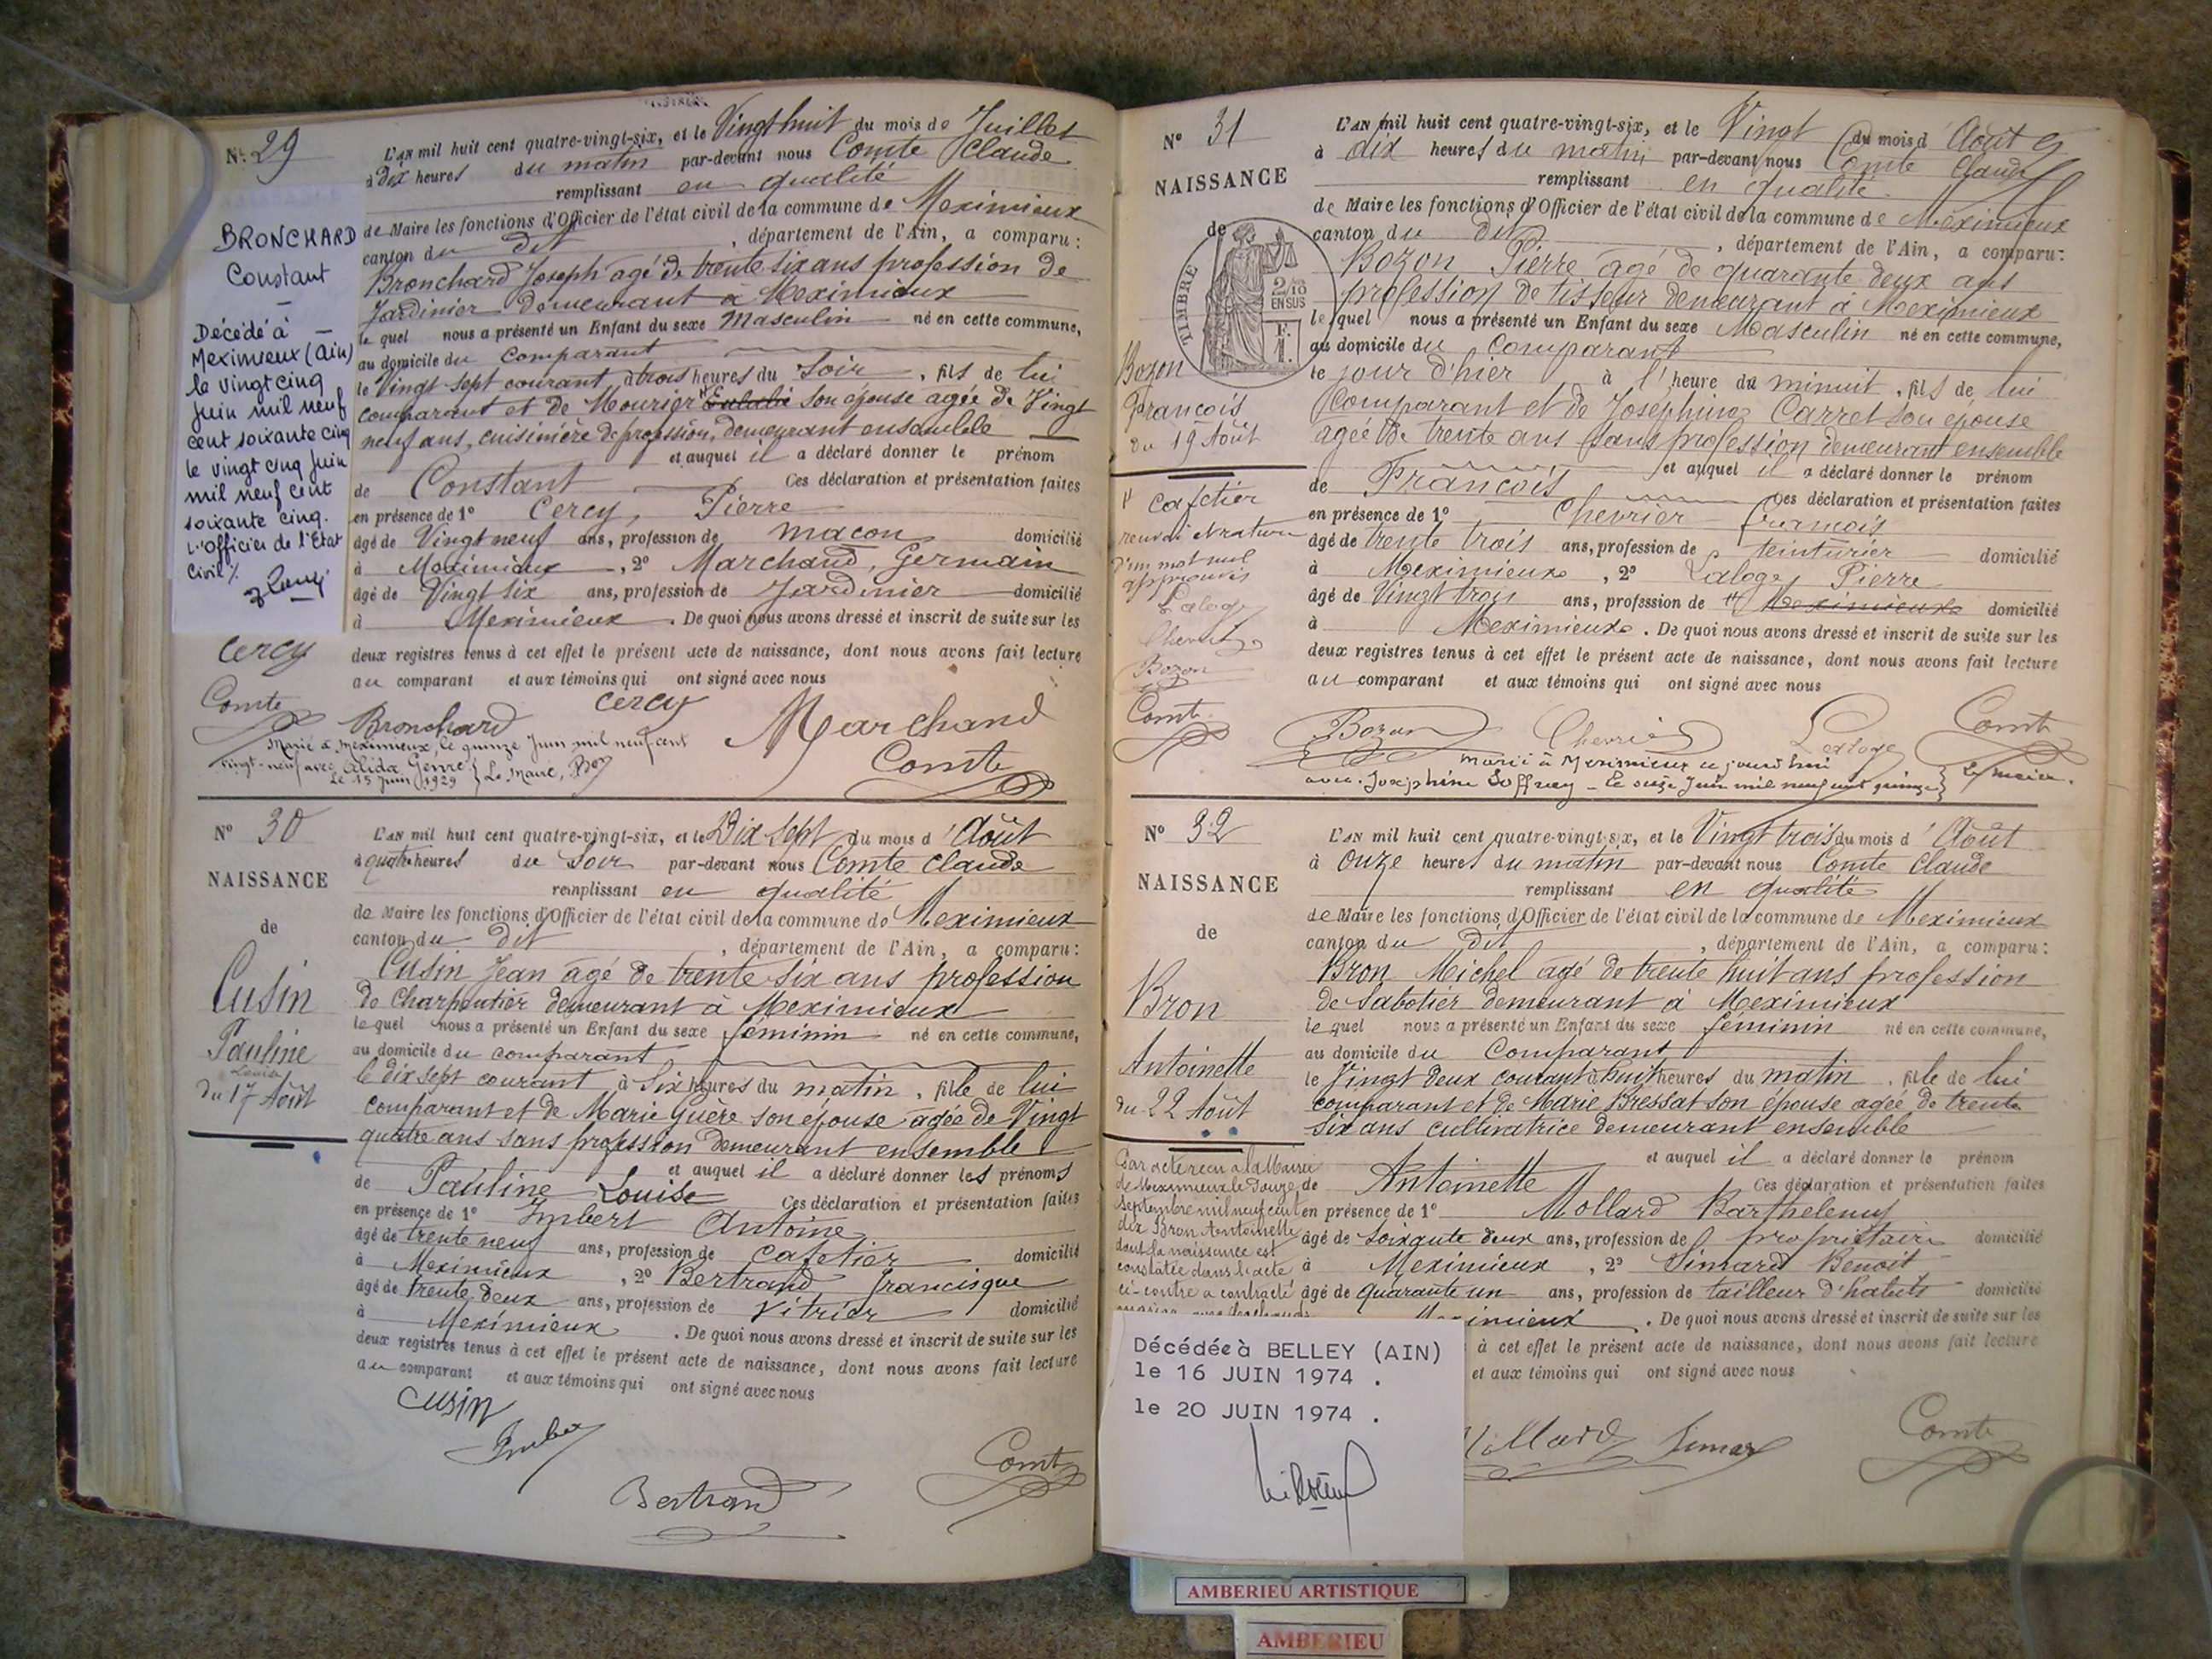 N° 29
L'AN mil huit cent quatre-vingt-six, et le Vingt huit du mois de Juillet
à dix heures du matin par-devant nous Comte Claude
remplissant en qualité
de Maire les fonctions d'Officier de l'état civil de la commune de Meximieux
canton du dit, département de l'Ain, a comparu:
Bronchard Joseph agé de trente six ans profession de
Jardinier demeurant à Meximieux
le quel nous a présenté un Enfant du sexe Masculin né en cette commune,
au domicile du Comparant
le Vingt sept courant, à trois heures du Soir, fils de lui
comparant et de Mourier son épouse agée de Vingt
neuf ans, cuisinière de profession, demeurant ensemble
et auquel il a déclaré donner le prénom
de Constant Ces déclaration et présentation faites
en présence de 1° Cercy, Pierre
âgé de Vingt neuf ans, profession de macon domicilié
à Meximieux, 2° Marchand, Germain
âgé de Vingt six ans, profession de Jardinier domicilié
à Meximieux. De quoi nous avons dressé et inscrit de suite sur les
deux registres tenus à cet effet le présent acte de naissance, dont nous avons fait lecture
au comparant et aux témoins qui ont signé avec nous
BRONCHARD
Constant
Décédé à
Meximieux (Ain)
le vingt cinq
Juin mil neuf
cent soixante cinq
le vingt cinq Juin
mil neuf cent
soixante cinq.
L'Officier de l'Etat
Civil %
Cercy
Comte
Bronchard
Cercy
Marchand
Comte
Marié à Meximieux, le quinze Juin mil neuf cent
vingt-neuf avec Alida Genre
Le 15 Juin 1929 Le Maire,
N° 30
NAISSANCE
de
Cusin
Pauline
Louise
du 17 Août
L'AN mil huit cent quatre-vingt-six, et le Dix sept du mois d'Août
à quatre heures du Soir par-devant nous Comte Claude
remplissant en qualité
de Maire les fonctions d'Officier de l'état civil de la commune de Meximieux
canton du dit, département de l'Ain, a comparu:
Cusin Jean agé de trente six ans profession
de Charpentier demeurant à Meximieux
le quel nous a présenté un Enfant du sexe féminin né en cette commune,
au domicile du comparant
le dix sept courant, à Six heures du matin, fille de lui
comparant et de Marie Guère son épouse agée de Vingt
quatre ans sans profession demeurant ensemble
et auquel il a déclaré donner les prénoms
de Pauline Louise Ces déclaration et présentation faites
en présence de 1° Imbert Antoine
âgé de trente neuf ans, profession de cafetier domicilié
à Meximieux, 2° Bertrand Francisque
âgé de trente deux ans, profession de Vitrier domicilié
à Meximieux. De quoi nous avons dressé et inscrit de suite sur les
deux registres tenus à cet effet le présent acte de naissance, dont nous avons fait lecture
au comparant et aux témoins qui ont signé avec nous
Cusin
Imbert
Bertrand
Comte
N° 31
NAISSANCE
de
TIMBRE
2/10
EN SUS
Bozon
François
du 19 Août
L'AN mil huit cent quatre-vingt-six, et le Vingt du mois d'Août
à dix heures du matin par-devant nous Comte Claude
remplissant en qualité
de Maire les fonctions d'Officier de l'état civil de la commune de Meximieux
canton du dit, département de l'Ain, a comparu:
Bozon Pierre agé de quarante deux ans
profession de tisseur demeurant à Meximieux
le quel nous a présenté un Enfant du sexe Masculin né en cette commune,
au domicile du Comparant
le jour d'hier à l'heure de minuit, fils de lui
Comparant et de Joséphine Carret son épouse
agée de trente ans sans profession demeurant ensemble
et auquel il a déclaré donner le prénom
de François Ces déclaration et présentation faites
en présence de 1° Chevrier François
âgé de trente trois ans, profession de teinturier domicilié
à Meximieux, 2° Laloge Pierre
âgé de Vingt trois ans, profession de Meximieux domicilié
à Meximieux. De quoi nous avons dressé et inscrit de suite sur les
deux registres tenus à cet effet le présent acte de naissance, dont nous avons fait lecture
au comparant et aux témoins qui ont signé avec nous
cafetier
renvoi et rature
d'un mot nul
approuvés
Laloge
Chevrier
Bozon
Comte
Bozon
Chevrier
Laloge
Comte
Marié à Meximieux ce jourd'hui
avec Joséphine Soffrey - Le seize Juin mil neuf cent quinze Le maire.
N° 32
NAISSANCE
de
Bron
Antoinette
du 22 Août
L'AN mil huit cent quatre-vingt-six, et le Vingt trois du mois d'Août
à onze heures du matin par-devant nous Comte Claude
remplissant en qualité
de Maire les fonctions d'Officier de l'état civil de la commune de Meximieux
canton du dit, département de l'Ain, a comparu:
Bron Michel agé de trente huit ans profession
de Sabotier demeurant à Meximieux
le quel nous a présenté un Enfant du sexe féminin né en cette commune,
au domicile du Comparant
le Vingt deux courant à huit heures du matin, fille de lui
comparant et de Marie Bressat son épouse agée de trente
six ans cultivatrice demeurant ensemble
et auquel il a déclaré donner le prénom
de Antoinette Ces déclaration et présentation faites
en présence de 1° Mollard Barthelemy
âgé de soixante deux ans, profession de propriétaire domicilié
à Meximieux, 2° Simard Benoit
âgé de quarante un ans, profession de tailleur d'habits domicilié
Meximieux. De quoi nous avons dressé et inscrit de suite sur les
à cet effet le présent acte de naissance, dont nous avons fait lecture
et aux témoins qui ont signé avec nous
Par acte reçu à la Mairie
de Meximieux le douze
Septembre mil neuf cent
dix Bron Antoinette
dont la naissance est
constatée dans l'acte
ci-contre a contracté
Décédée à BELLEY (AIN)
le 16 JUIN 1974 .
le 20 JUIN 1974 .
Mollard
Simard
Comte
AMBERIEU ARTISTIQUE
AMBERIEU